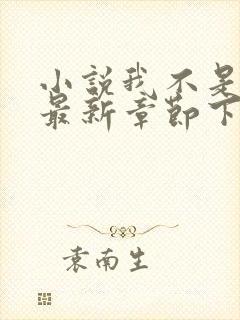 小說我不是
最新章節下
袁南生